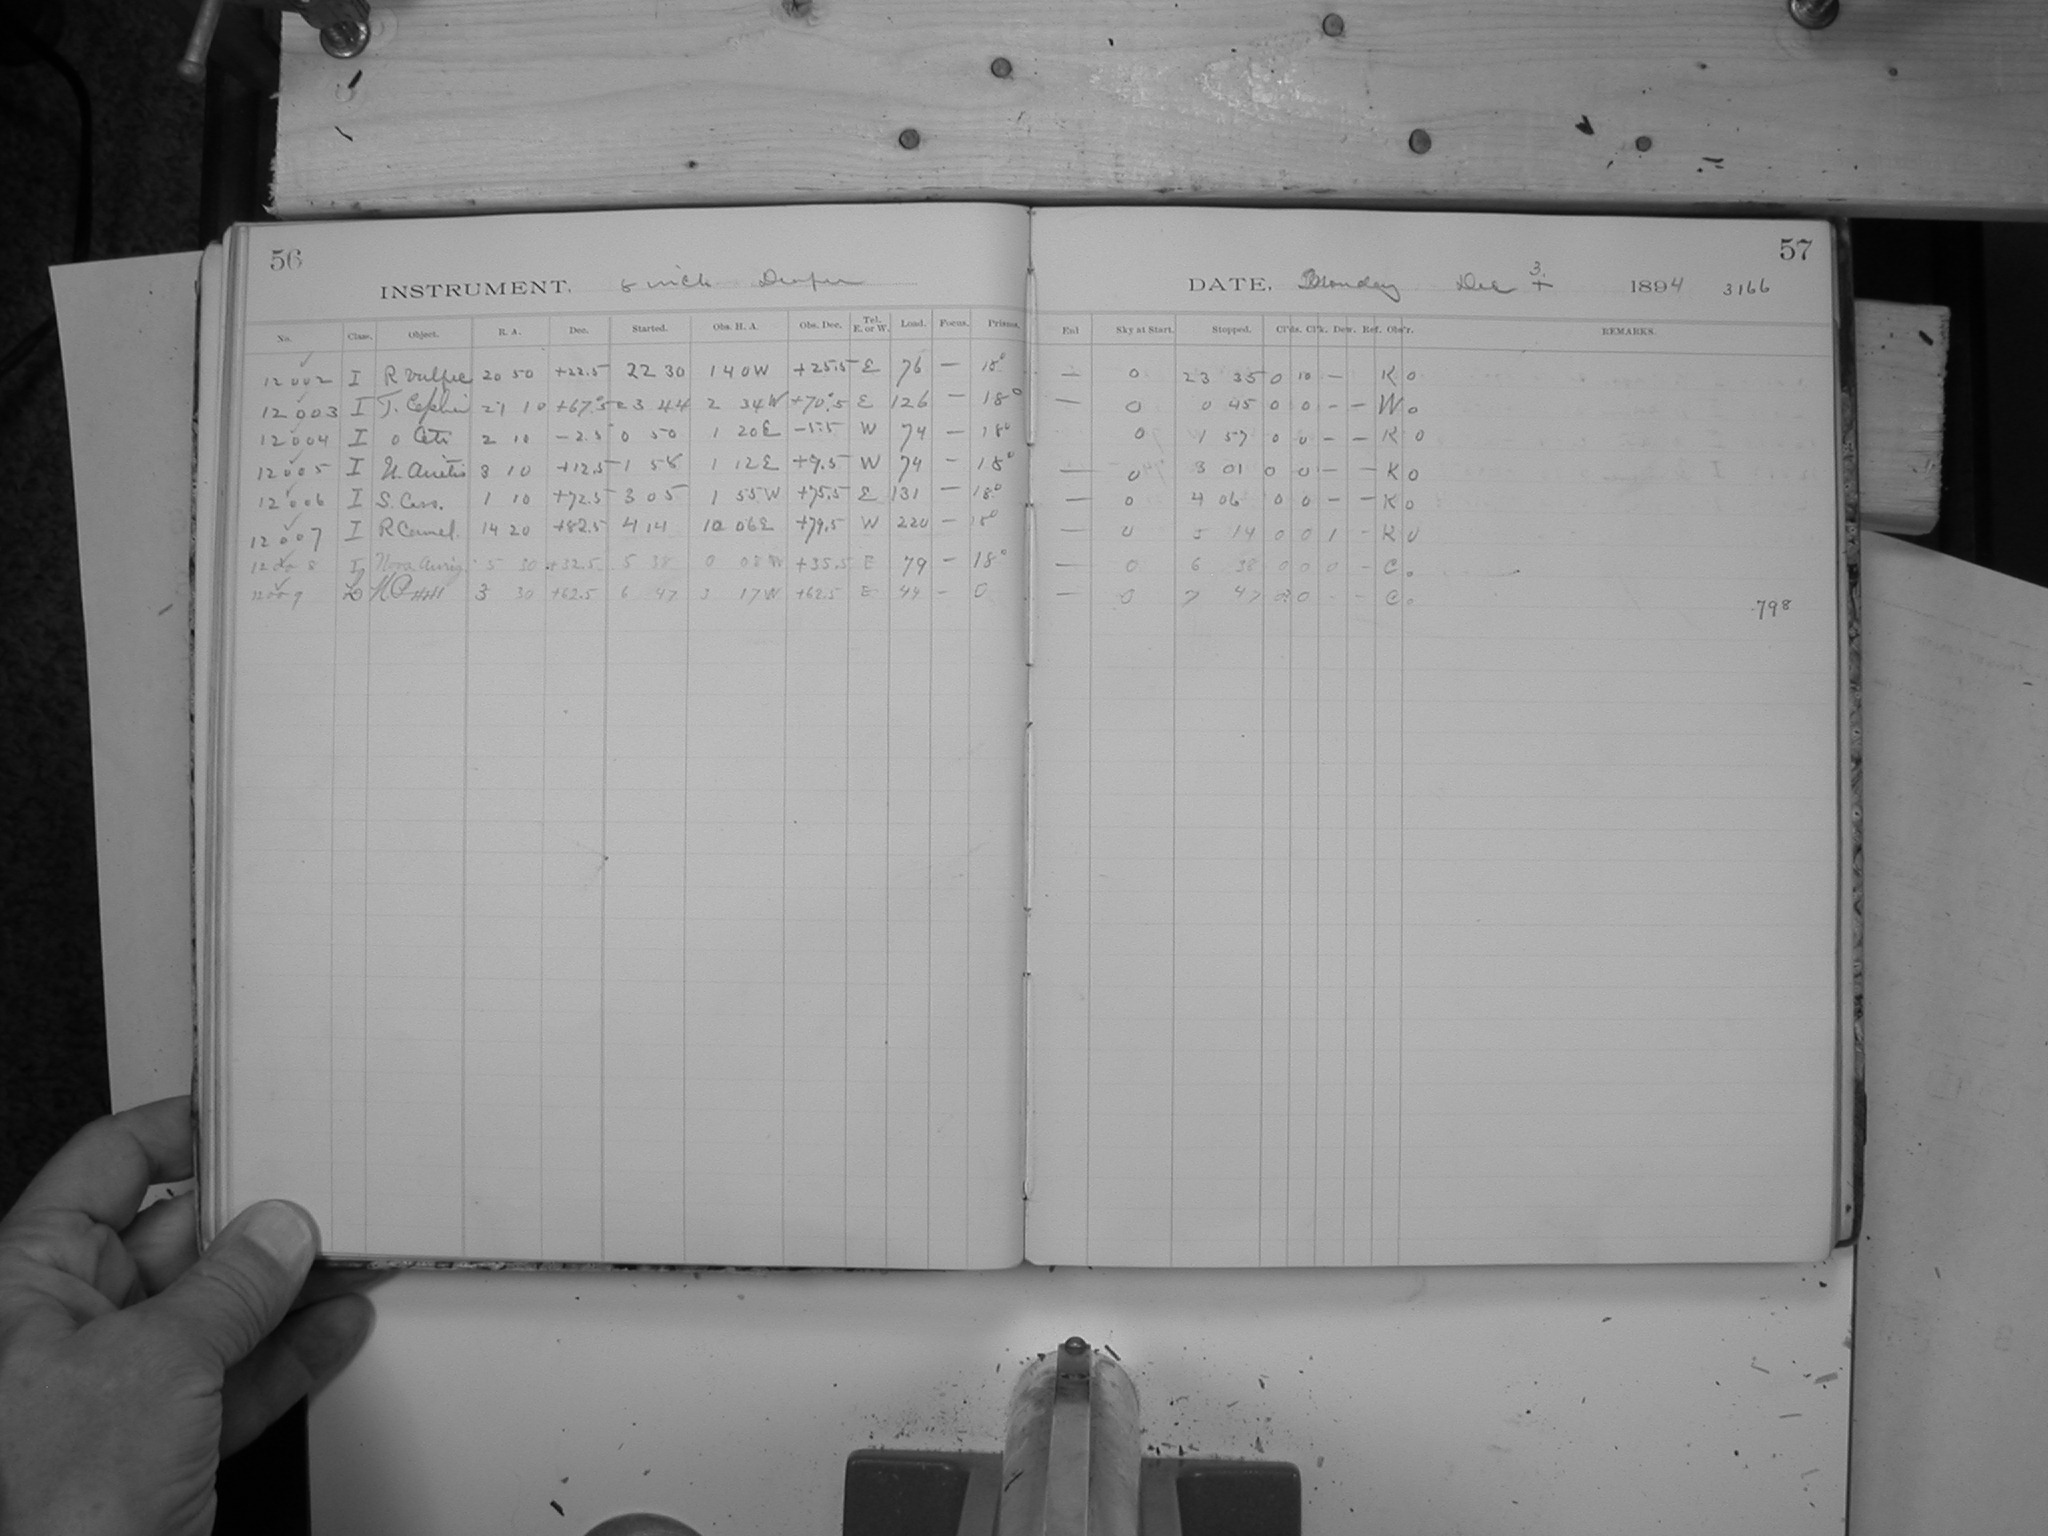 56
INSTRUMENT. 8 inch Draper
No. Class. Object. R. A. Dec. Started. Obs. H. A. Obs. Dec. Tel. E. or W. Load. Focus. Prisms.
12002 I R Vulpec 20 50 +22.5 22 30 1 40W +25.5 E 76 — 18°
12003 I T. Cephei 21 10 +67.5 23 44 2 34W +70.5 E 126 — 18°
12004 I o Ceti 2 10 -2.5 0 50 1 20E -5.5 W 74 — 18°
12005 I U. Arietis 3 10 +12.5 1 58 1 12E +9.5 W 74 — 18°
12006 I S. Cass. 1 10 +72.5 3 05 1 55W +75.5 E 131 — 18°
12007 I R Camel. 14 20 +82.5 4 14 10 06E +79.5 W 220 — 18°
12008 I Nova Aurig 5 30 +32.5 5 38 0 08W +35.5 E 79 — 18°
12009 3 30 +62.5 6 47 3 17W +62.5 E 49 — 0
57
DATE. Monday Dec 3. 1894 3166
End Sky at Start. Stopped. Cl'ds. Cl'k. Dew. Ref. Obs'r. REMARKS.
— 0 23 35 0 10 — K 0
— 0 0 45 0 0 — — W 0
0 1 57 0 0 — — K 0
— 0 3 01 0 0 — — K 0
— 0 4 06 0 0 — — K 0
— 0 5 14 0 0 1 — K 0
— 0 6 38 0 0 0 — C 0
— 0 7 47 0 — — C 0
798